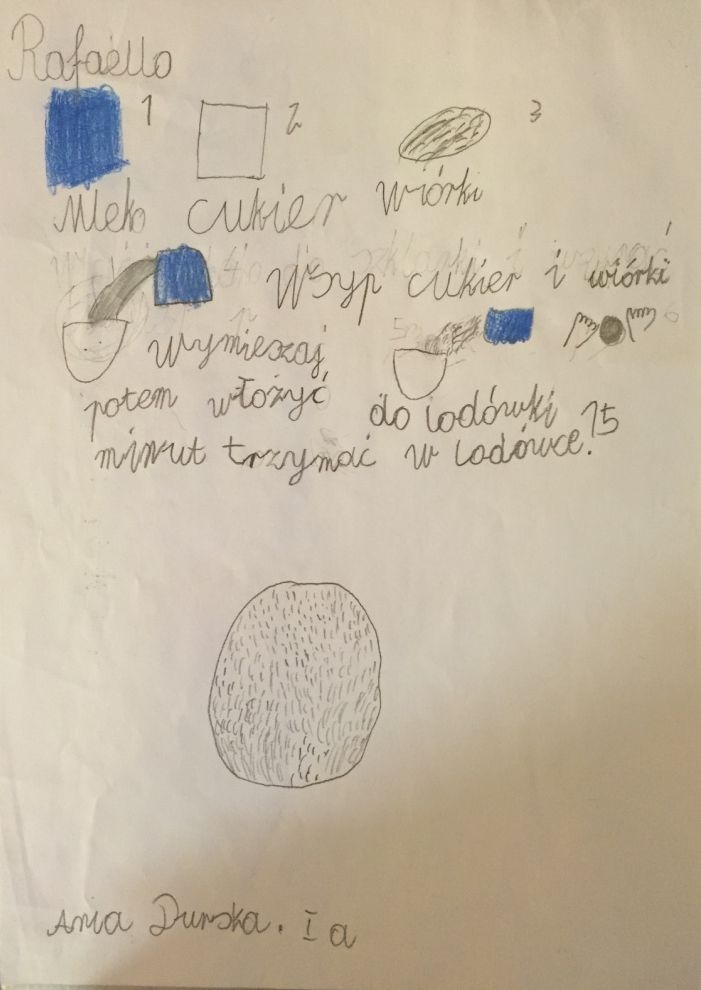 Rafaello
1 2 3
Mleko cukier wiórki
4 Wsyp cukier i wiórki
wymieszaj 5 6
potem włożyć do lodówki 15
minut trzymać w lodówce.
Ania Durska. I a